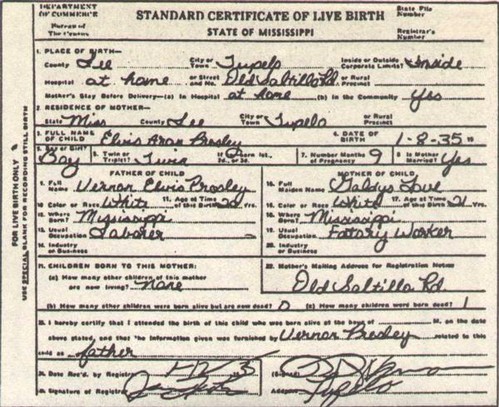 DEPARTMENT OF COMMERCE
Bureau of The Census
STANDARD CERTIFICATE OF LIVE BIRTH
STATE OF MISSISSIPPI
State File Number
Registrar's Number
1. PLACE OF BIRTH—
County Lee City or Town Tupelo Inside or Outside Corporate Limits? Inside
Hospital at home or Street and No. Old Saltillo Rd or Rural Precinct
Mother's Stay Before Delivery—(a) In Hospital at home (b) In the Community Yes
2. RESIDENCE OF MOTHER—
State Miss County Lee City or Town Tupelo or Rural Precinct
3. FULL NAME OF CHILD Elvis Aron Presley 4. DATE OF BIRTH 1-8-35 19
5. Boy or Girl? Boy 6. Twin or Triplet? Twin 7. Number Months of Pregnancy 9 8. Is Mother Married? Yes
FATHER OF CHILD
MOTHER OF CHILD
9. Full Name Vernon Elvis Presley
15. Full Maiden Name Gladys Love
10. Color or Race White 11. Age at Time of this Birth 20 Yrs.
16. Color or Race White 17. Age at Time of this Birth 21 Yrs.
12. Where Born? Mississippi
18. Where Born? Mississippi
13. Usual Occupation Laborer
19. Usual Occupation Factory Worker
14. Industry or Business
20. Industry or Business
21. CHILDREN BORN TO THIS MOTHER:
22. Mother's Mailing Address for Registration Notice
(a) How many other children of this mother are now living? None
Old Saltillo Rd
(b) How many other children were born alive but are now dead? 0 (c) How many children were born dead? 1
23. I hereby certify that I attended the birth of this child who was born alive at the hour of M. on the date
above stated, and that the information given was furnished by Vernon Presley related to this
child as father
24. Date Rec'd. by Registrar
25. Signature of Registrar
(Signed)
Address Tupelo
FOR LIVE BIRTH ONLY
USE SPECIAL BLANK FOR RECORDING STILL BIRTH